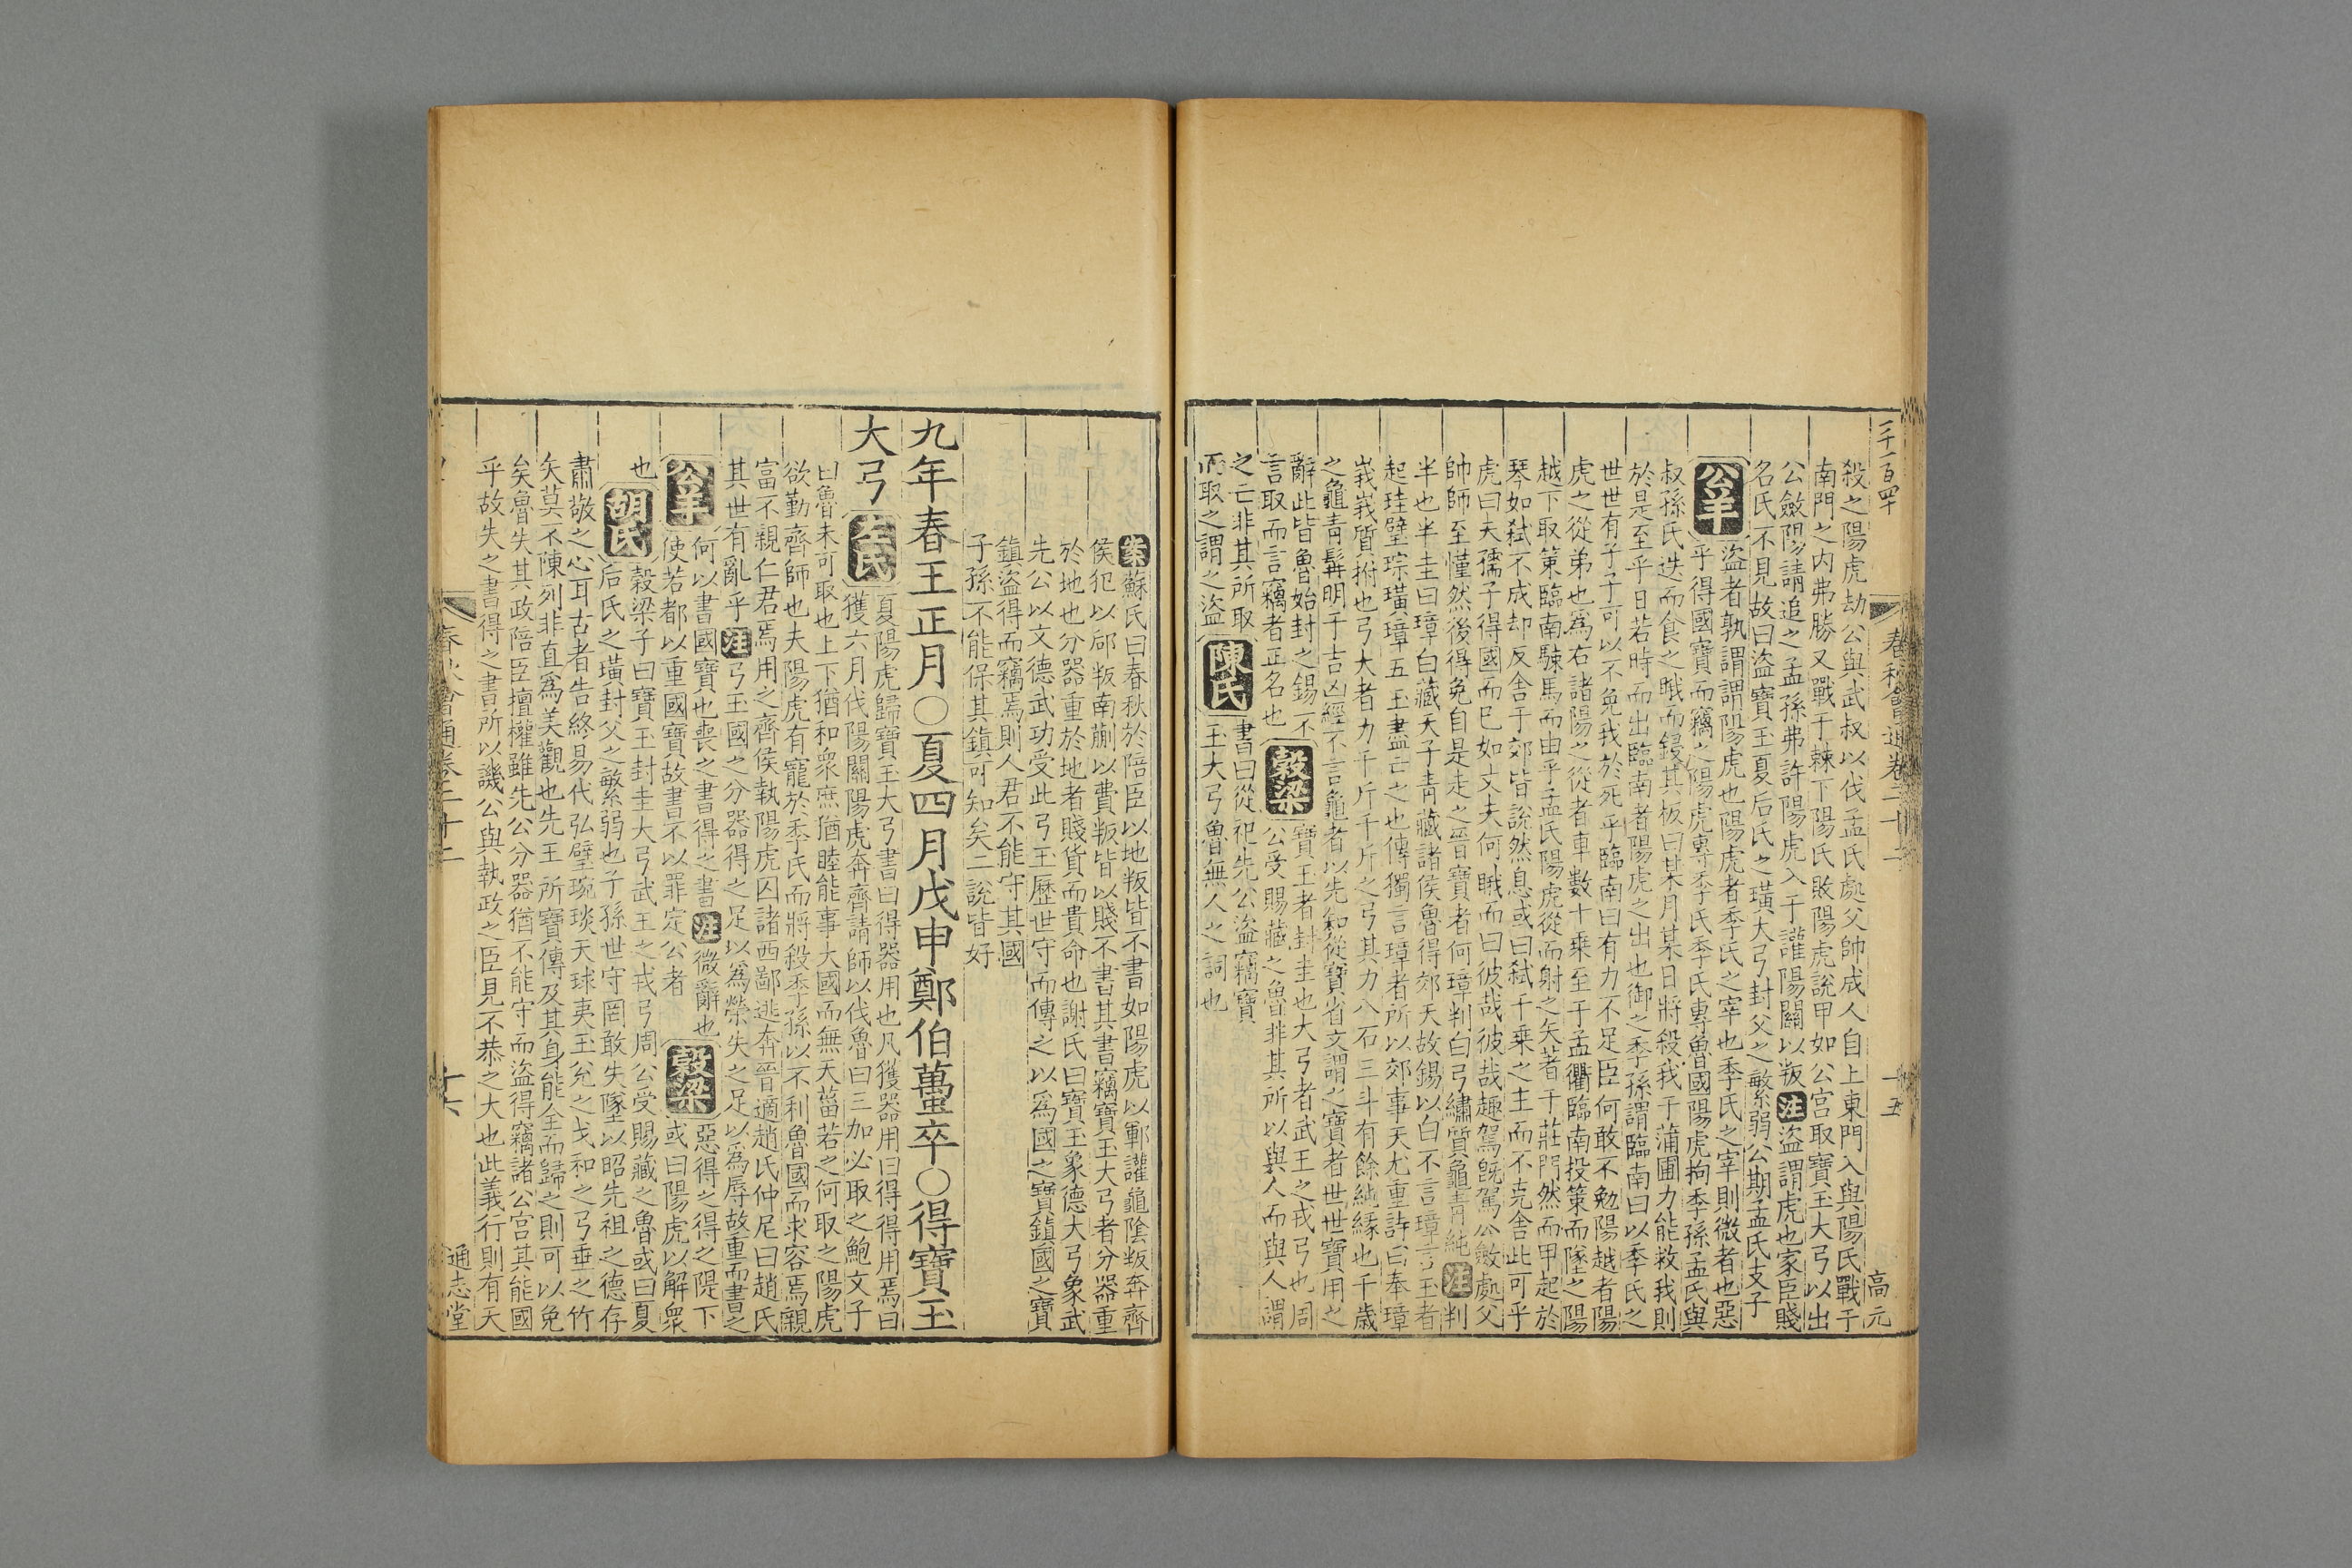 二千一百四十
春秋會通卷二十二
十五
高元
殺之陽虎劫公與武叔以伐孟氏處父帥成人自上東門入與陽氏戰于
南門之内弗勝又戰于棘下陽氏敗陽虎說甲如公宮取寶玉大弓以出
公斂陽請追之孟孫弗許陽虎入于讙陽關以叛注盜謂虎也家臣賤
名氏不見故曰盜寶玉夏后氏之璜大弓封父之繁弱公期孟氏支子
公羊盜者孰謂謂陽虎也陽虎者季氏之宰也季氏之宰則微者也惡
乎得國寶而竊之陽虎專季氏季氏專魯國陽虎拘季孫孟氏與
叔孫氏迭而食之睋而鋟其板曰某月某日將殺我于蒲圃力能救我則
於是至乎日若時而出臨南者陽虎之出也御之季孫謂臨南曰以季氏之
世世有子子可以不免我於死乎臨南曰有力不足臣何敢不勉陽越者陽
虎之從弟也爲右諸陽之從者車數十乗至于孟衢臨南投策而墜之陽
越下取策臨南駷馬而由乎孟氏陽虎從而射之矢著于莊門然而甲起於
琴如弑不成却反舍于郊皆說然息或曰弑千乗之主而不克舍此可乎
虎曰夫孺子得國而已如丈夫何睋而曰彼哉彼哉趣駕旣駕公斂處父
帥師至慬然後得免自是走之晉寶者何璋判白弓繡質龜青純注判
半也半圭曰璋白藏天子青藏諸侯魯得郊天故錫以白不言璋言玉者
起珪璧琮璜璋五玉盡亡之也傳獨言璋者所以郊事天尤重詩曰奉璋
峩峩質拊也弓大者力千斤千斤之弓其力八石三斗有餘純緣也千歳
之龜青髯明于吉凶經不言龜者以先知從寶省文謂之寶者世世寶用之
辭此皆魯始封之錫不
言取而言竊者正名也穀梁寶玉者封圭也大弓者武王之戎弓也周
公受賜藏之魯非其所以與人而與人謂
之亡非其所取
而取之謂之盜陳氏書曰從祀先公盜竊寶
玉大弓魯無人之詞也
蘇氏曰春秋於陪臣以地叛皆不書如陽虎以鄆讙龜陰叛奔齊
侯犯以郈叛南蒯以費叛皆以賤不書其書竊寶玉大弓者分器重
於地也分器重於地者賤貨而貴命也謝氏曰寶玉象德大弓象武
先公以文德武功受此弓玉歷世守而傳之以爲國之寶鎮國之寶
鎮盜得而竊焉則人君不能守其國
子孫不能保其鎮可知矣二說皆好
九年春王正月○夏四月戊申鄭伯蠆卒○得寶玉
大弓左氏夏陽虎歸寶玉大弓書曰得器用也凡獲器用曰得得用焉曰
獲六月伐陽關陽虎奔齊請師以伐魯曰三加必取之鮑文子
曰魯未可取也上下猶和衆庶猶睦能事大國而無天菑若之何取之陽虎
欲勤齊師也夫陽虎有寵於季氏而將殺季孫以不利魯國而求容焉親
富不親仁君焉用之齊侯執陽虎囚諸西鄙逃奔晉適趙氏仲尼曰趙氏
其世有亂乎注弓玉國之分器得之足以爲榮失之足以爲辱故重而書之
公羊何以書國寶也喪之書得之書注微辭也
使若都以重國寶故書不以罪定公者穀梁惡得之得之隄下
或曰陽虎以解衆
也穀梁子曰寶玉封圭大弓武王之戎弓周公受賜藏之魯或曰夏
胡氏后氏之璜封父之繁弱也子孫世守罔敢失墜以昭先祖之德存
肅敬之心耳古者告終易代弘璧琬琰天球夷玉兊之戈和之弓垂之竹
矢莫不陳列非直爲美觀也先王所寶傳及其身能全而歸之則可以免
矣魯失其政陪臣擅權雖先公分器猶不能守而盜得竊諸公宮其能國
乎故失之書得之書所以譏公與執政之臣見不恭之大也此義行則有天
春秋會通卷二十二
十六
通志堂